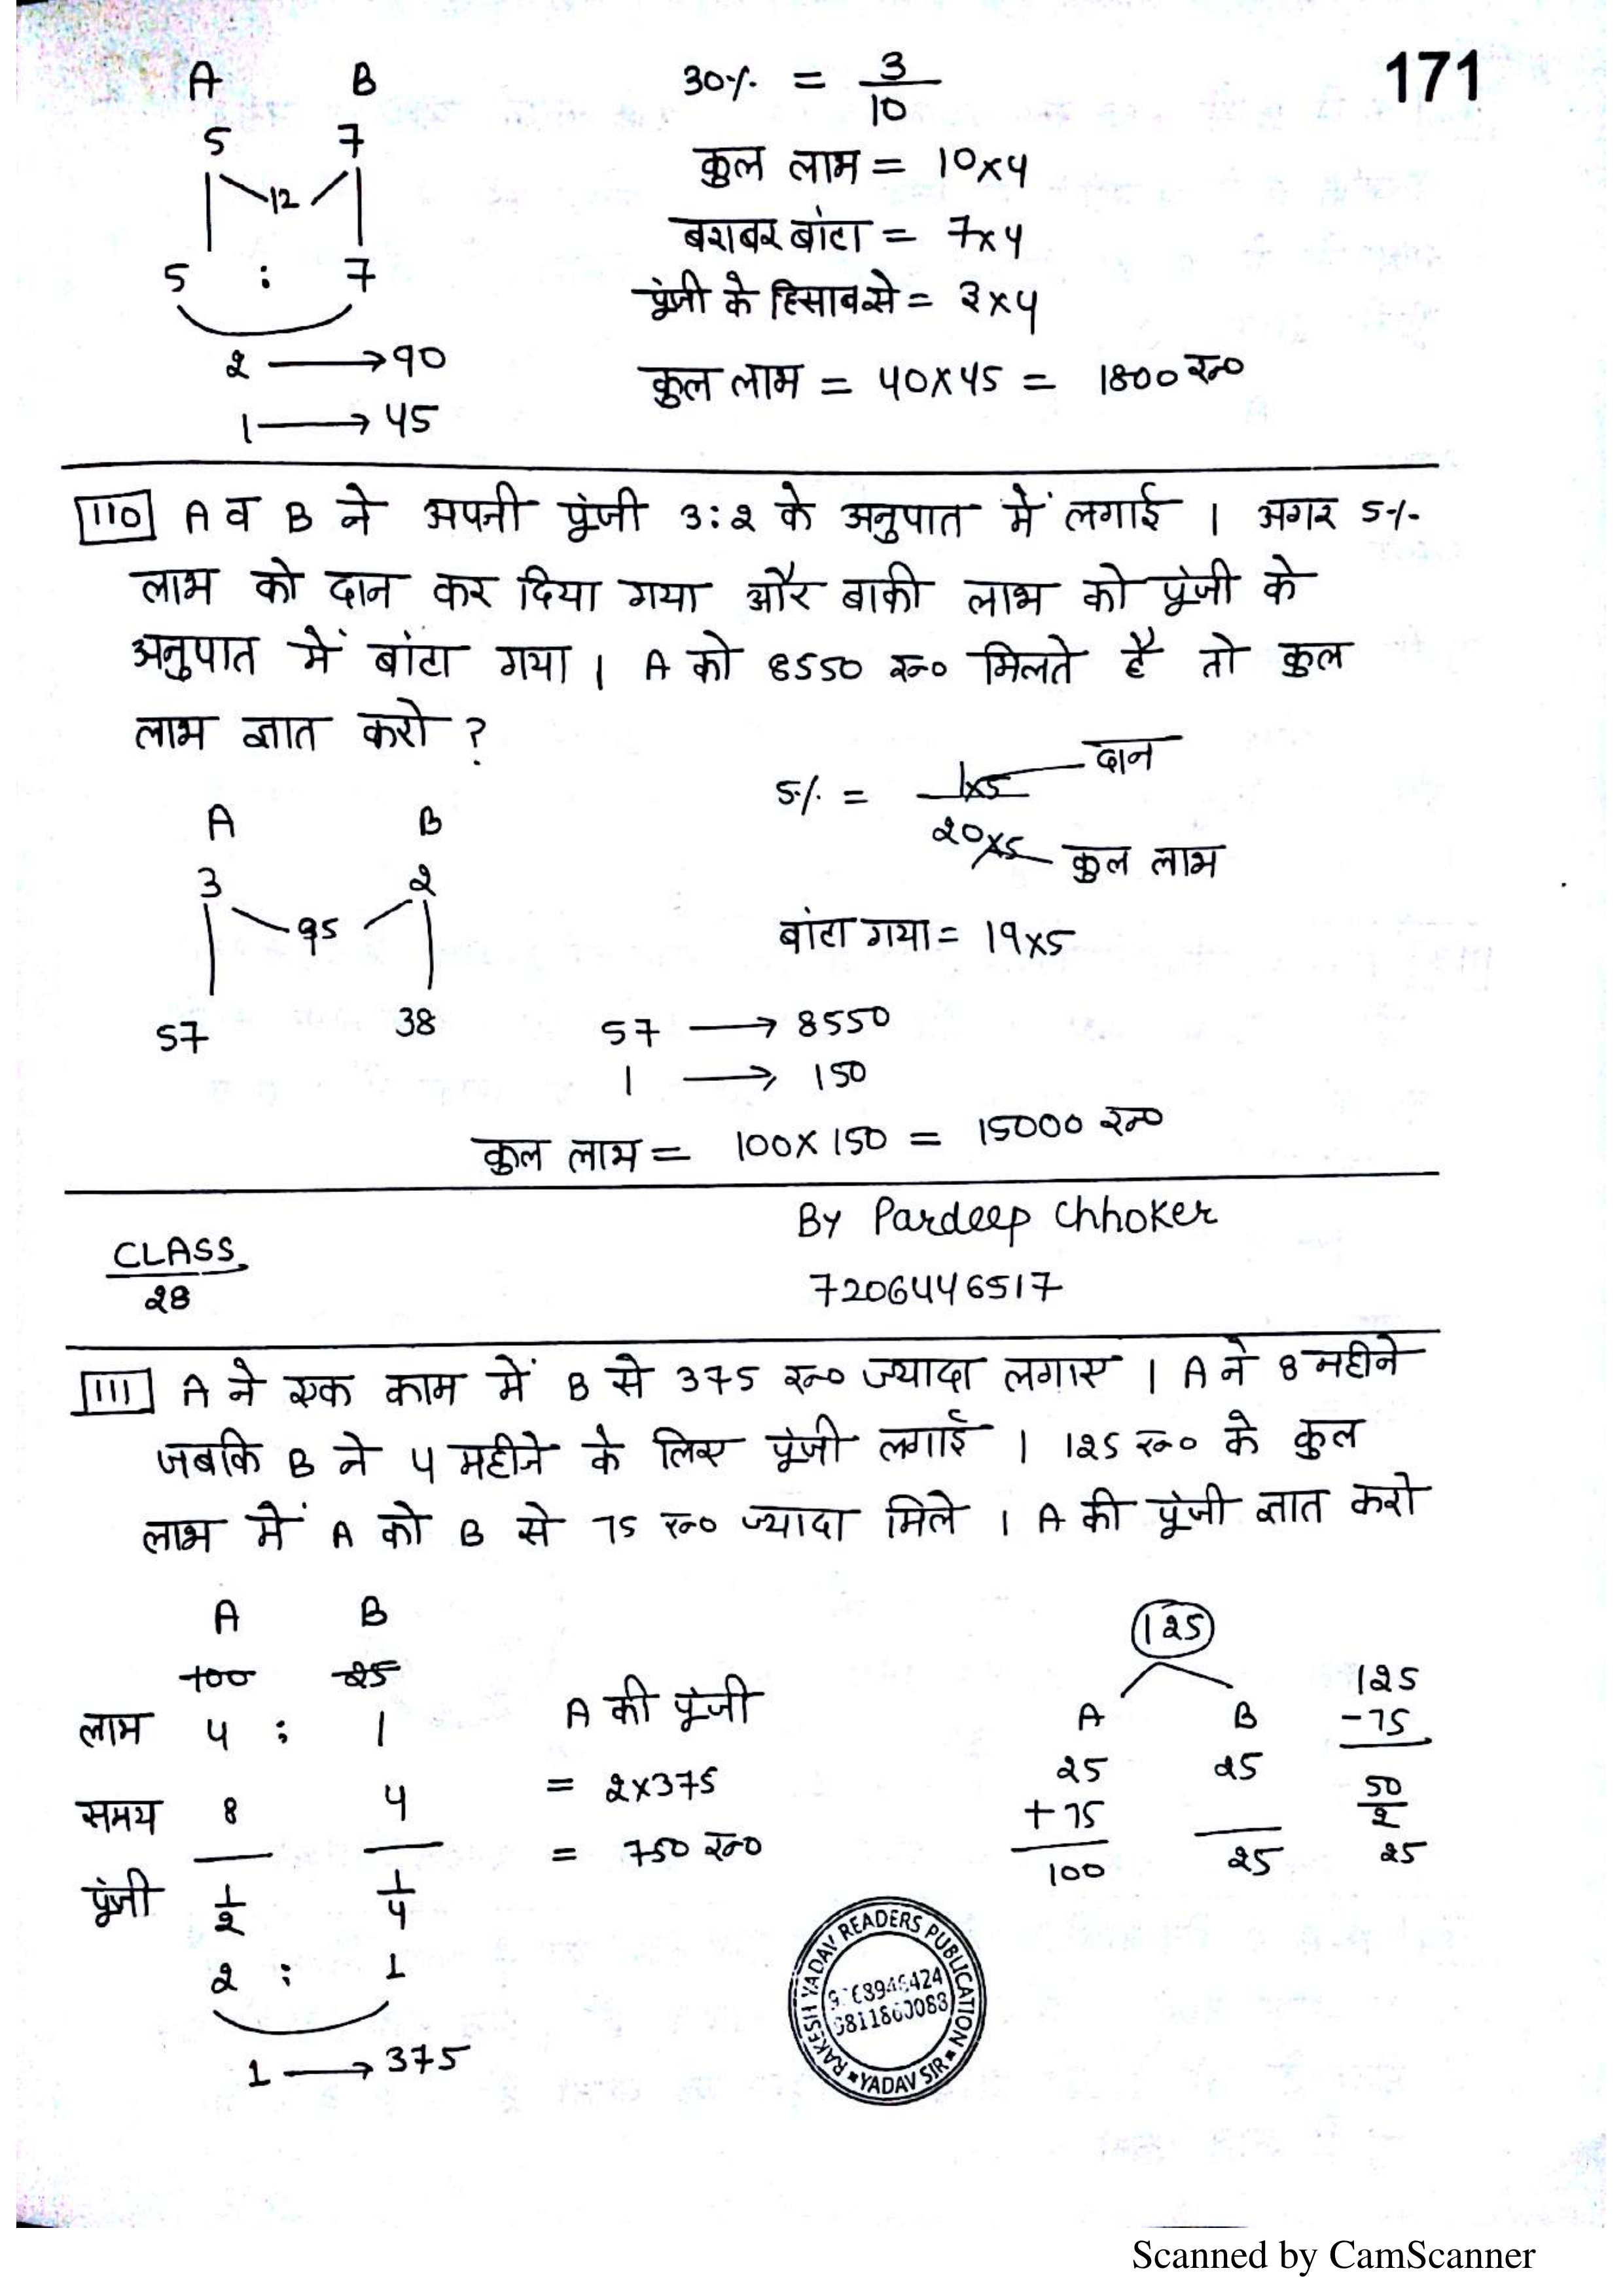 171
A B
5 7
12
5 : 7
2 → 90
1 → 45
30% = 3/10
कुल लाभ = 10×4
बराबर बांटा = 7×4
पूंजी के हिसाब से = 3×4
कुल लाभ = 40×45 = 1800 रु०
110 A व B ने अपनी पूंजी 3:2 के अनुपात में लगाई । अगर 5%
लाभ को दान कर दिया गया और बाकी लाभ को पूंजी के
अनुपात में बांटा गया । A को 8550 रु० मिलते है तो कुल
लाभ ज्ञात करो ?
A B
3 2
95
57 38
5% = 1×5 दान
20×5 कुल लाभ
बांटा गया = 19×5
57 → 8550
1 → 150
कुल लाभ = 100×150 = 15000 रु०
CLASS
28
By Pardeep Chhoker
7206446517
111 A ने एक काम में B से 375 रु० ज्यादा लगाए । A ने 8 महीने
जबकि B ने 4 महीने के लिए पूंजी लगाई । 125 रु० के कुल
लाभ में A को B से 75 रु० ज्यादा मिले । A की पूंजी ज्ञात करो
A B
100 25
लाभ 4 : 1
समय 8 4
पूंजी 1/2 1/4
2 : 1
1 → 375
A की पूंजी
= 2×375
= 750 रु०
125
A B
25 25
+75
100 25
125
-75
50
2
25
RAKESH YADAV READERS PUBLICATION
YADAV SIR
Scanned by CamScanner